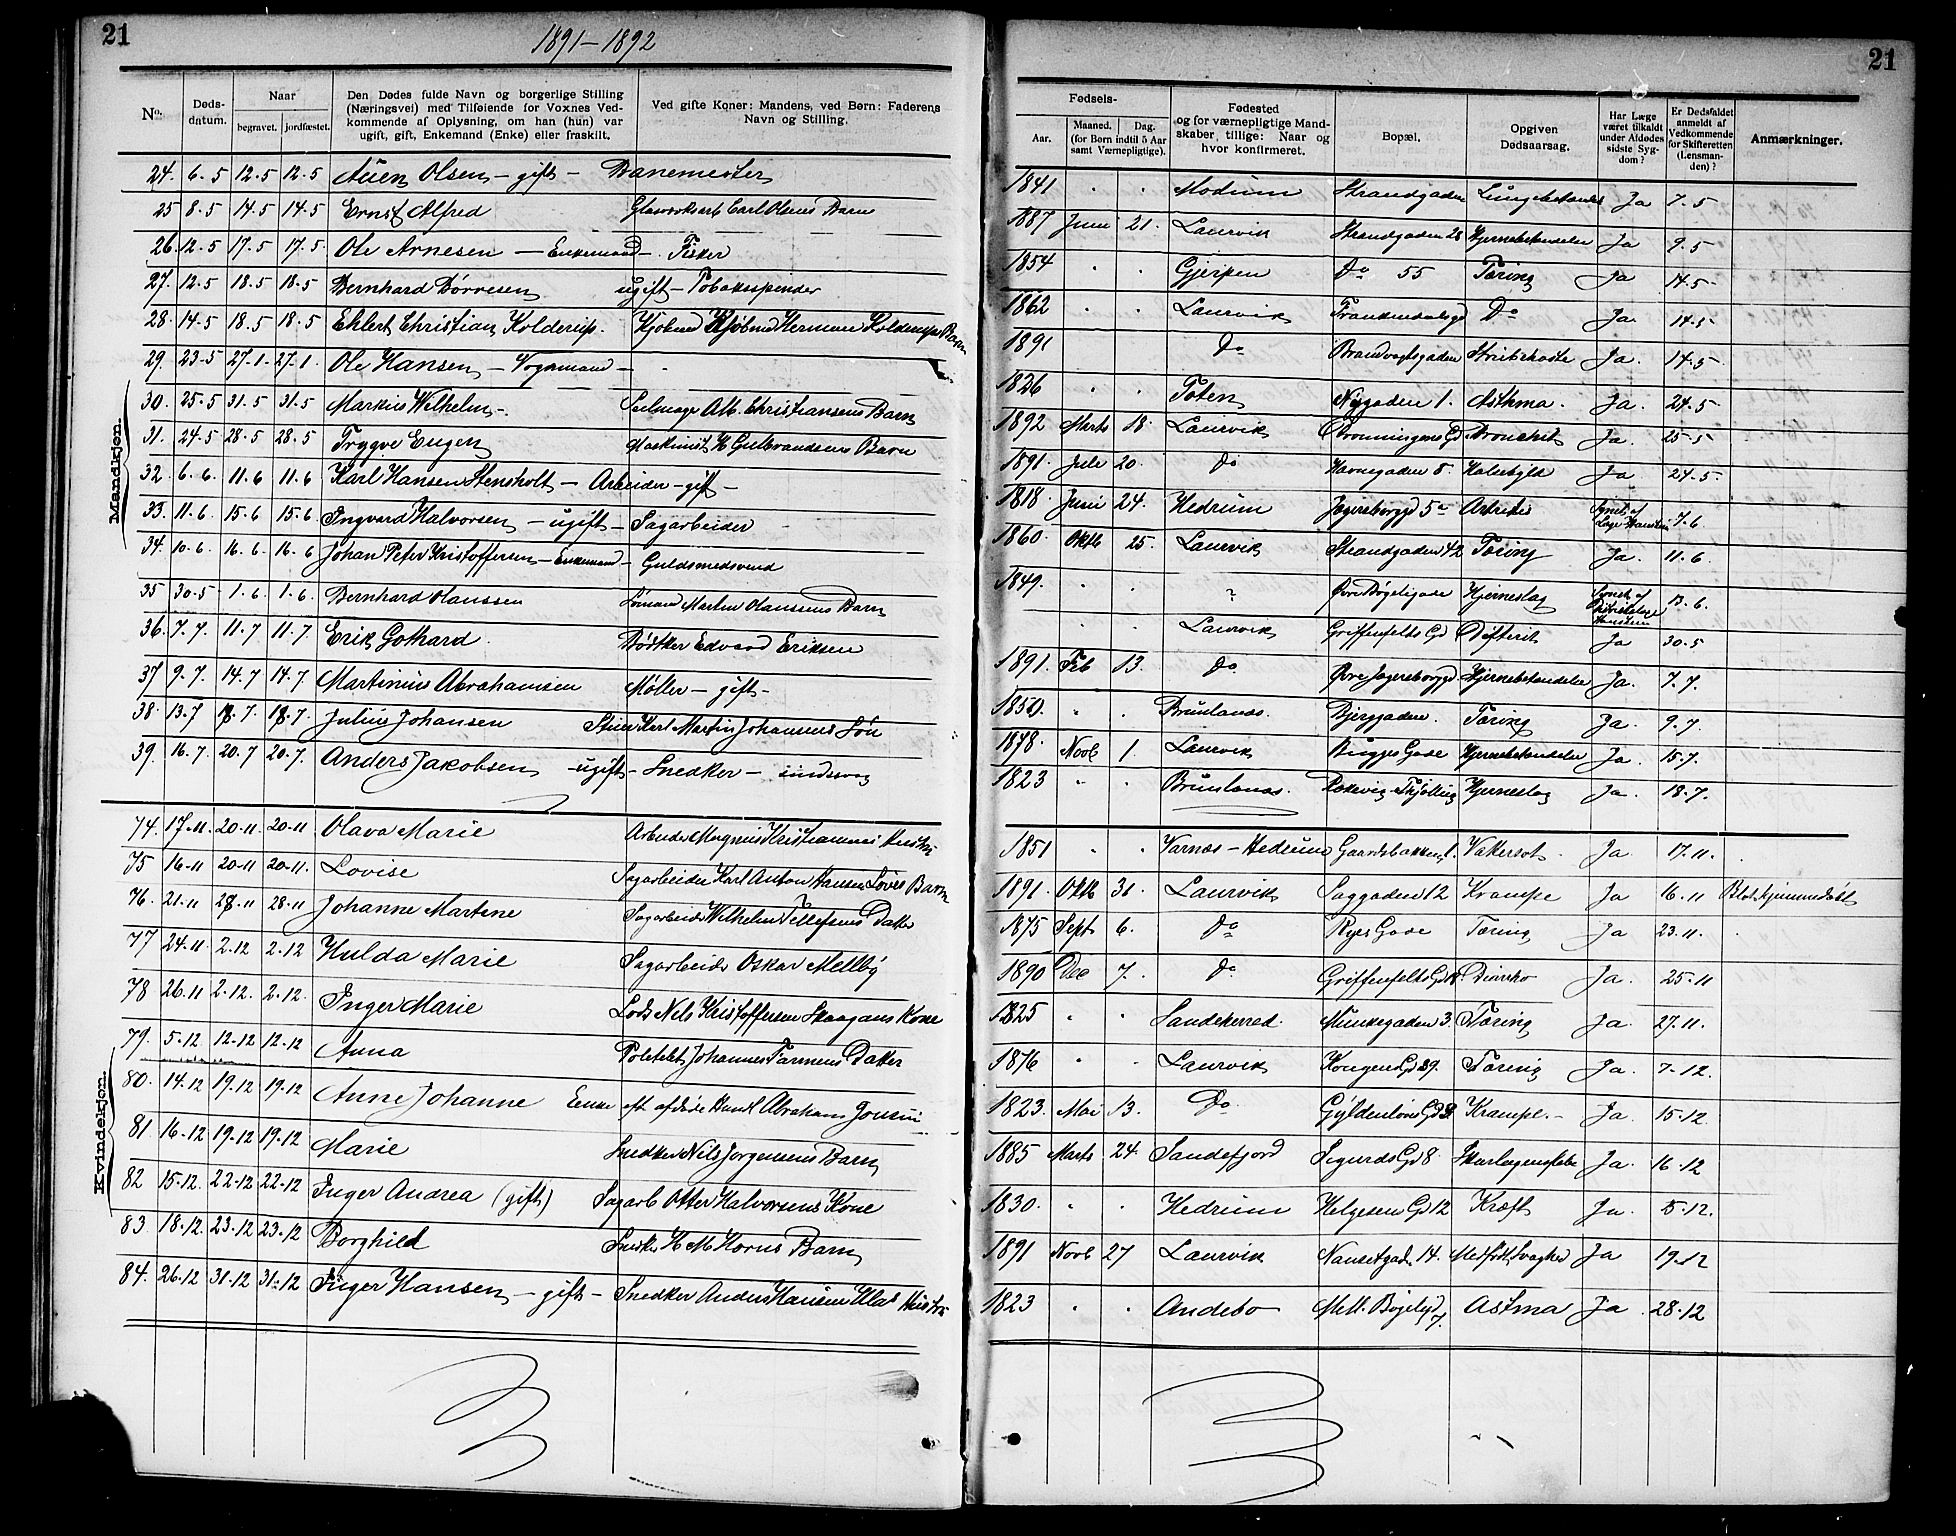 21
1891-1892
No.
Døds-datum.
Naar
begravet.
jordfæstet.
Den Dødes fulde Navn og borgerlige Stilling
(Næringsvei) med Tilføiende for Voxnes Ved-
kommende af Oplysning, om han (hun) var
ugift, gift, Enkemand (Enke) eller fraskilt.
Ved gifte Koner: Mandens, ved Børn: Faderens
Navn og Stilling.
Mandkjøn.
24. 6-5 12-5 12-5 Olsen - gift - Banemester
25 8-5 14-5 14-5 Ernst Alfred Glasværksarb Carl Olsens Barn
26. 12-5 17-5 17-5 Ole Arnesen - Enkemand - Fisker
27. 12-5 18-5 18-5 Bernhard Børresen ugift - Tobaksspinder
28. 14-5 18-5 18-5 Ehlert Christian Kolderup. Kjøbmd Herman Kolderups Barn
29. 23-5 27-1 27-1 Ole Hansen - Vognmand -
30. 25-5 31-5 31-5 Markus Wilhelm - Seilmager Alb. Christiansens Barn
31. 24-5 28-5 28-5 Trygve Eugen Maskinist K Gulbrandsens Barn
32. 6-6 11-6 11-6 Karl Hansen Stensholt - Arbeider - gift -
33. 11-6 15-6 15-6 Ingvard Halvorsen - ugift - Sagarbeider
34. 10-6 16-6 16-6 Johan Peter Kristoffersen - Enkemand - Guldsmedsvend
35 30-5 1-6 1-6 Bernhard Olaussen Sømand Martin Olaussens Barn
36. 7-7 11-7 11-7 Erik Gothard Bødtker Edvard Eriksen
37 9-7 14-7 14-7 Martinius Abrahamsen Møller - gift -
38. 13-7 18-7 18-7 Julius Johansen Karl Martin Johansens Søn
39. 16-7 20-7 20-7 Anders Jakobsen - ugift - Snedker - sindssvag
Kvindekjøn.
74. 17-11 20-11 20-11 Olava Marie Arbeider Magnus Kristiansens Hustru
75 16-11 20-11 20-11 Lovise Sagarbeider Karl Anton Hansen Barn
76. 21-11 28-11 28-11 Johanne Martine Sagarbeider Wilhelm Tellefsens Datter
77 24-11 2-12 2-12 Hulda Marie Sagarbeider Oskar Mellby
78 26-11 2-12 2-12 Inger Marie Lods Nils Kristoffersen Skaagans Kone
79. 5-12 12-12 12-12 Anna Politibt Johannes Farmens Datter
80. 14-12 19-12 19-12 Anne Johanne Enke eft afdøde Abraham
81. 16-12 19-12 19-12 Marie Snedker Nils Jørgensens Barn
82 15-12 22-12 22-12 Inger Andrea (gift) Sagarb Otter Halvorsens Kone
83 18-12 23-12 23-12 Borghild Snedker K M Korns Barn
84. 26-12 31-12 31-12 Inger Hansen - gift - Snedker Anders Hansen Hustru
21
Fødsels-
Aar.
Maaned.
Dag.
(for Børn indtil 5 Aar
samt Værnepligtige).
Fødested
og for værnepligtige Mand-
skaber, tillige: Naar og
hvor konfirmeret.
Bopæl.
Opgiven
Dødsaarsag.
Har Læge
været tilkaldt
under Afdødes
sidste Syg-
dom?
Er Dødsfaldet
anmeldt af
Vedkommende
for Skifteretten
(Lensman-
den)?
Anmærkninger.
1841 Modum Strandgaden Lungebetændelse Ja 7-5
1887 Juni 21. Laurvik Strandgaden 28 Hjernebetændelse Ja 9-5
1854 Gjerpen Do 55 Tæring Ja 14-5
1862 Laurvik Do Ja 14-5
1891 Do Brandvagtsgaden Strubehoste Ja 14-5
1826 Toten Nygaden 1. Asthma. Ja. 24-5
1892 Marts 18. Laurvik Dronningens Gd Bronchit Ja 25-5
1891. Juli 20. Do Havnegaden 8. Ja 24-5
1818 Juni 24. Hedrum Jegersborggd 5a Synet af Læge 7-6
1860. Oktb 25. Laurvik Strandgaden 42 Tæring Ja 11-6
1849. ? Øvre Bøgeligade Hjerneslag Synet af Distriktslæge 13-6.
Laurvik Griffenfelts Gd Difterit Ja 30-5
1891. Feb 13. Do Øvre Jegersborggd. Hjernebetændelse Ja. 7-7.
1850. Brunlanæs. Bjerggaden. Tæring Ja 9-7
1878. Novb 1. Laurvik Brygges Gade Hjernebetændelse Ja. 15-7.
1823 Brunlanæs. Tjølling Hjerneslag Ja. 18-7.
1851 Varnæs - Hedrum Gaardsbakken 1. Vattersot Ja 17-11.
1891. Oktb 31. Laurvik Saggaden 12 Krampe Ja 16-11 Blot hjemmedøbt
1875 Sept 6. Do Ryes Gade Tæring Ja 23-11.
1890 Dec 7. Do Griffenfelts Gd Ja. 25-11
1825 Sandeherred. Munkegaden 3. Tæring Ja. 27-11.
1876 Laurvik Kongens Gd 29. Tæring Ja. 7-12.
1823. Mai 13. Do Gyldenløves Gd Krampe. - Ja. 15-12.
1885 Marts 24. Sandefjord Sigurds Gd 8. Skarlagensfeber Ja. 16-12
1830. Hedrum Helgesen Gd 12 Kræft Ja. 15-12.
1891 Novb 27 Laurvik Nansetgad. 14. Medfødt Svaghed Ja 19-12
1823 Andebo Mell. Bøgeligd 7. Astma Ja 28-12